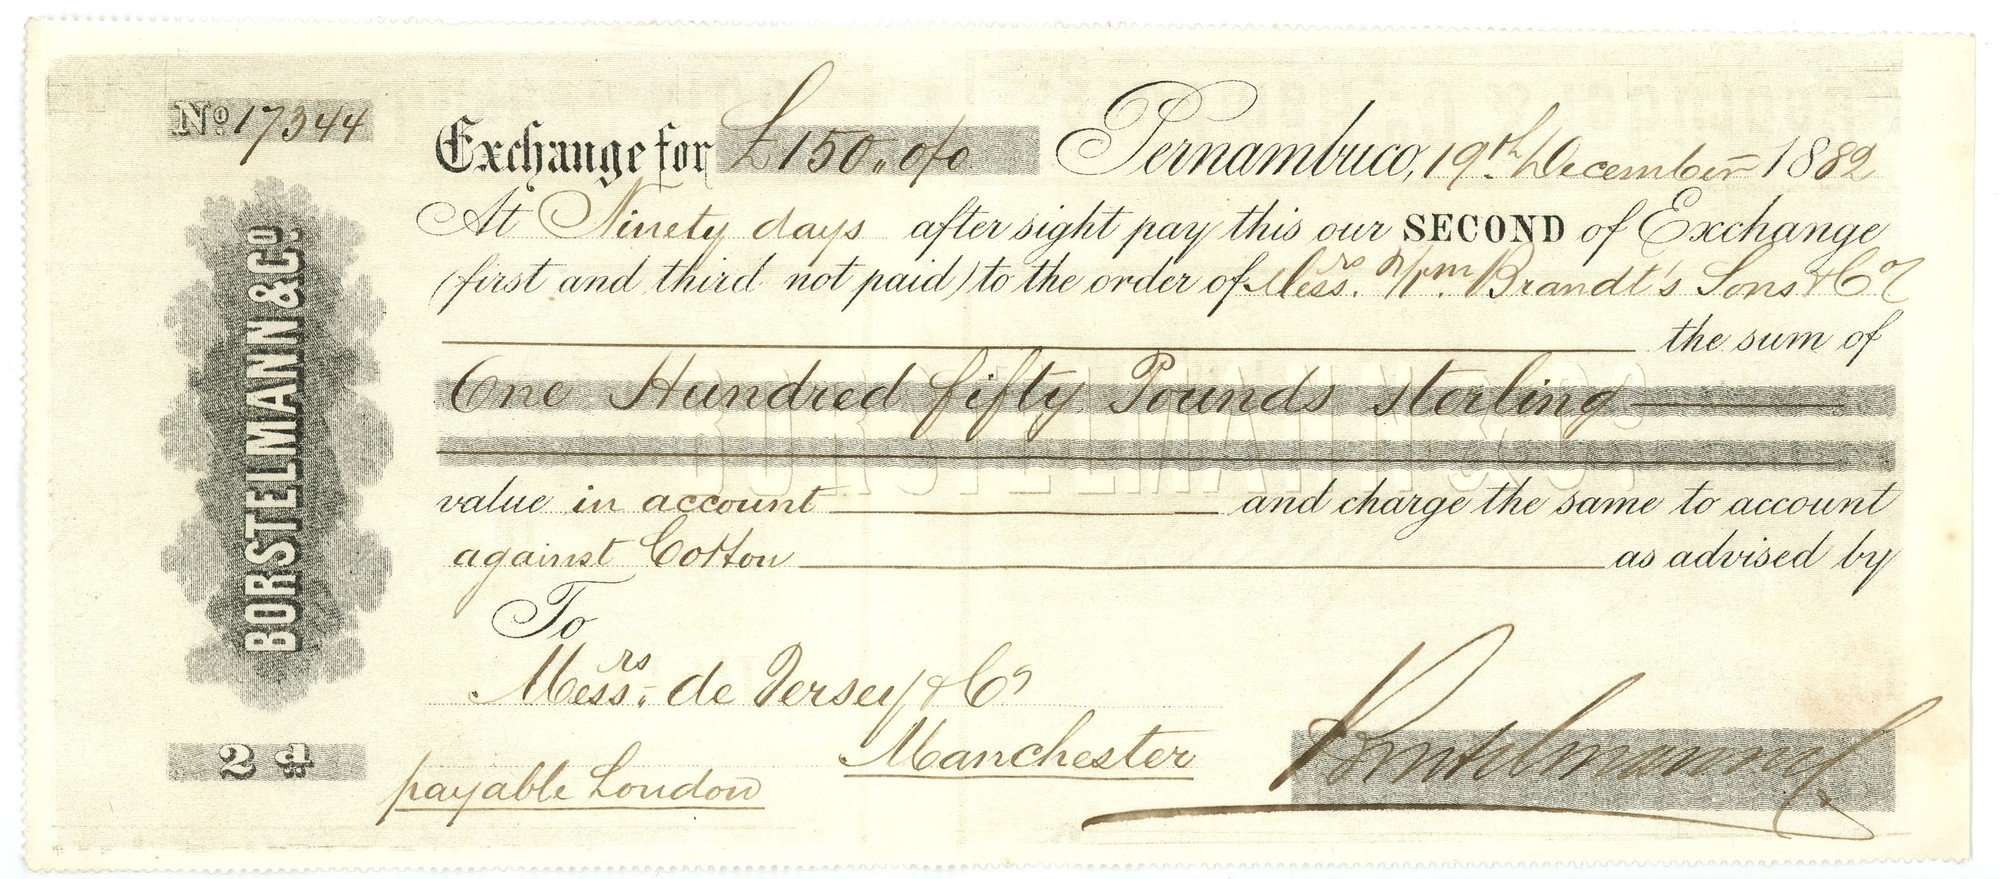 No 17344
Exchange for £150.,0/0 Pernambuco, 19th December 1882
At Ninety days after sight pay this our SECOND of Exchange
(first and third not paid) to the order of Messrs. Wm. Brandt's Sons & Co
the sum of
One Hundred fifty Pounds sterling
BORSTELMANN & Co
value in account and charge the same to account
against Cotton as advised by
To
Messrs. de Jersey & Co
Manchester
payable London
Borstelmann &
BORSTELMANN & Co.
2d